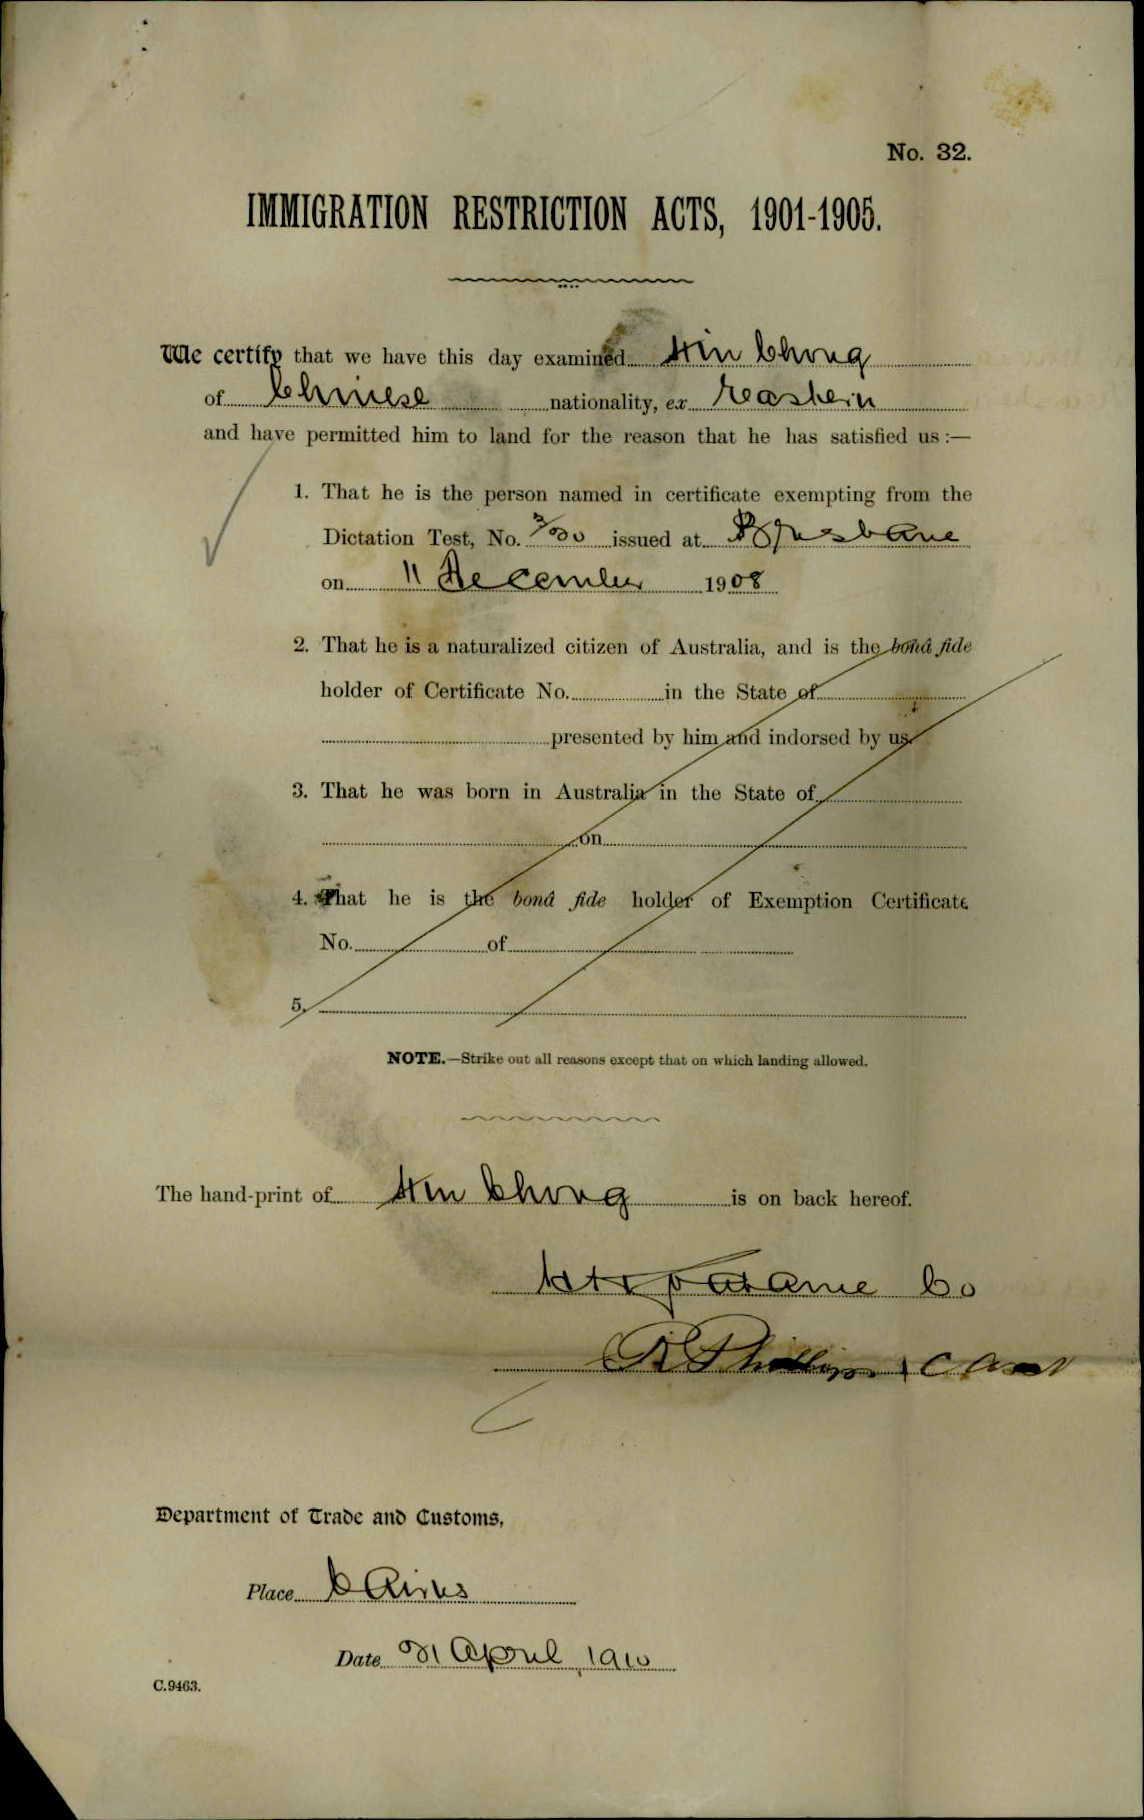 No. 32.
IMMIGRATION RESTRICTION ACTS, 1901-1905.
We certify that we have this day examined Hin Chong
of Chinese nationality, ex Eastern
and have permitted him to land for the reason that he has satisfied us :—
1. That he is the person named in certificate exempting from the
Dictation Test, No. issued at Brisbane
on 11 December 1908
2. That he is a naturalized citizen of Australia, and is the bonâ fide
holder of Certificate No. in the State of
presented by him and indorsed by us.
3. That he was born in Australia in the State of
on
4. That he is the bonâ fide holder of Exemption Certificate
No. of
5.
NOTE.—Strike out all reasons except that on which landing allowed.
The hand-print of Hin Chong is on back hereof.
Co
Department of Trade and Customs,
Place Cairns
Date 21 April, 1910
C.9463.